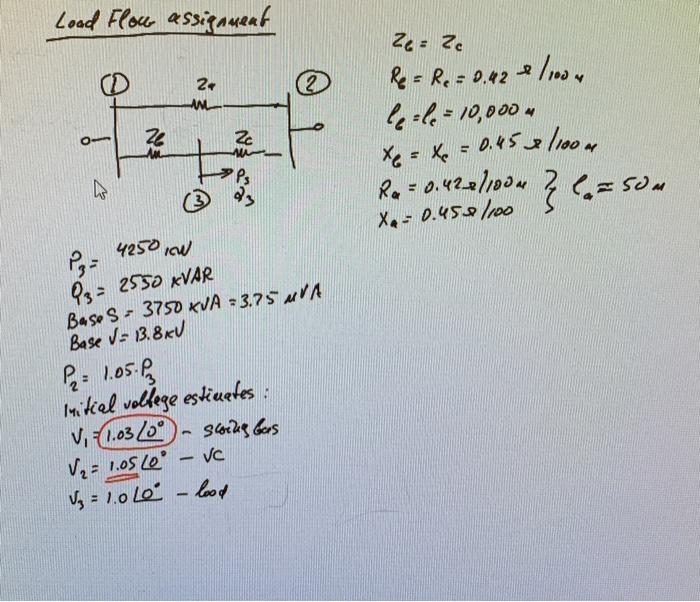 Load Flow assignment
① Za ②
Zb Zc
P3
③ Q3
Zb = Zc
Rb = Rc = 0.42 Ω/100 m
lb = lc = 10,000 m
Xb = Xc = 0.45 Ω/100 m
Ra = 0.42 Ω/100m } la = 50 m
Xa = 0.45 Ω/100
P3 = 4250 KW
Q3 = 2550 KVAR
Base S = 3750 KVA = 3.75 MVA
Base V = 13.8 KV
P2 = 1.05·P3
Initial voltage estimates :
V1 = 1.03 ∠0° - swing bus
V2 = 1.05 ∠0° - VC
V3 = 1.0 ∠0° - load